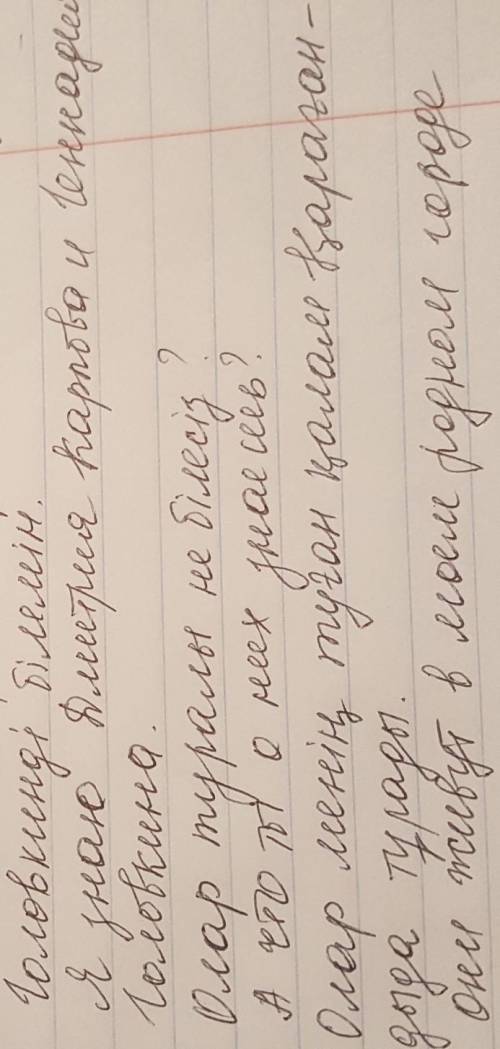 Головкинді білемін.
Я знаю Дмитрия Карпова и Геннадия
Головкина.
Олар туралы не білесің?
А что ты о них знаешь?
Олар менің туған қалам Қараған-
дыда тұрады.
Они живут в моем родном городе